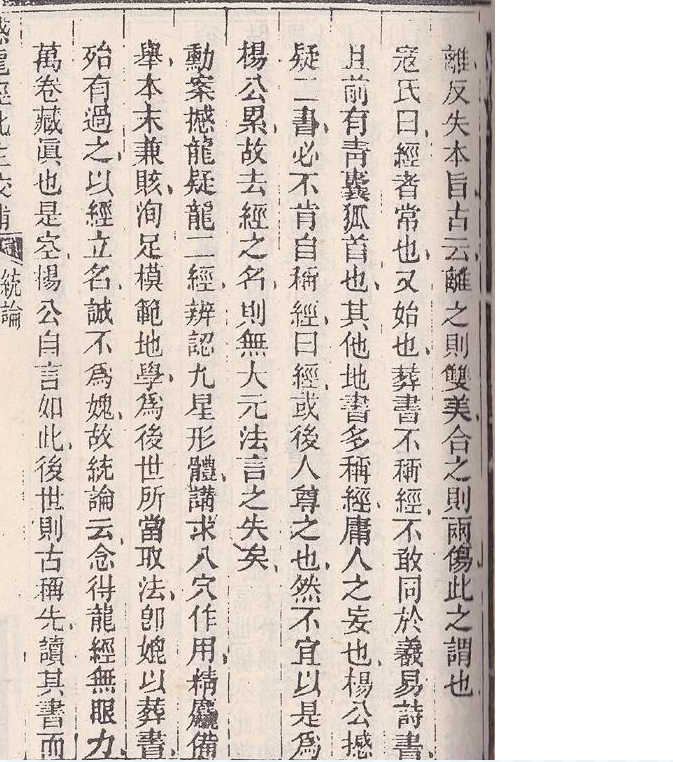 離反失本旨古云離之則雙美合之則兩傷此之謂也
寇氏曰經者常也又始也葬書不稱經不敢同於羲易詩書
且前有青囊狐首也其他地書多稱經庸人之妄也楊公撼
疑二書必不肯自稱經曰經或後人尊之也然不宜以是為
楊公累故去經之名則無大元法言之失矣
勳案撼龍疑龍二經辨認九星形體講求八穴作用精麤備
舉本末兼賅洵足模範地學為後世所當取法卽媲以葬書
殆有過之以經立名誠不為媿故統論云念得龍經無眼力
萬卷藏眞也是空楊公自言如此後世則古稱先讀其書而
龍經 校補 統論